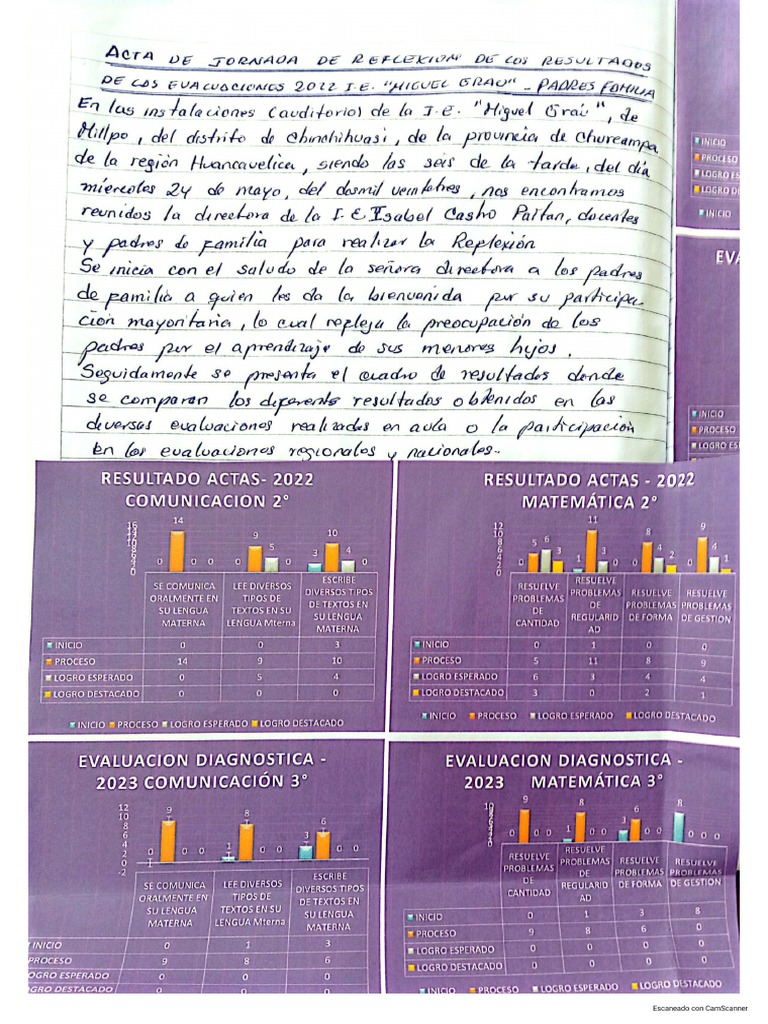 ACTA DE JORNADA DE REFLEXION DE LOS RESULTADOS
DE LAS EVALUACIONES 2022 I.E. "MIGUEL GRAU" - PADRES FAMILIA
En las instalaciones (auditorio) de la I.E. "Miguel Grau", de
Millpo, del distrito de Chinchihuasi, de la provincia de Churcampa
de la región Huancavelica, siendo las seis de la tarde, del día
miercoles 24 de mayo, del dosmil veintetres, nos encontramos
reunidos la directora de la I.E Isabel Castro Paitan, docentes
y padres de familia para realizar la Reflexión
Se inicia con el saludo de la señora directora a los padres
de familia a quien les da la bienvenida por su participa
ción mayoritaria, lo cual refleja la preocupación de los
padres por el aprendizaje de sus menores hijos.
Seguidamente se presenta el cuadro de resultados donde
se comparan los diferents resultados obtenidos en las
diversas evaluaciones realizadas en aula o la participación
en las evaluaciones regionales y nacionales.
INICIO
PROCESO
LOGRO ES
LOGRO D
INICIO
EVA
INICIO
PROCESO
LOGRO ESP
LOGRO DES
RESULTADO ACTAS- 2022
COMUNICACION 2°
14
9
5
3
10
4
SE COMUNICA ORALMENTE EN SU LENGUA MATERNA
LEE DIVERSOS TIPOS DE TEXTOS EN SU LENGUA Mterna
ESCRIBE DIVERSOS TIPOS DE TEXTOS EN SU LENGUA MATERNA
INICIO 0 0 3
PROCESO 14 9 10
LOGRO ESPERADO 0 5 4
LOGRO DESTACADO 0 0 0
INICIO PROCESO LOGRO ESPERADO LOGRO DESTACADO
RESULTADO ACTAS - 2022
MATEMÁTICA 2°
0 5 6 3 1 11 3 0 0 8 4 2 0 9 4 1
RESUELVE PROBLEMAS DE CANTIDAD
RESUELVE PROBLEMAS DE REGULARID AD
RESUELVE PROBLEMAS DE FORMA
RESUELVE PROBLEMAS DE GESTION
INICIO 0 1 0 0
PROCESO 5 11 8 9
LOGRO ESPERADO 6 3 4 4
LOGRO DESTACADO 3 0 2 1
INICIO PROCESO LOGRO ESPERADO LOGRO DESTACADO
EVALUACION DIAGNOSTICA -
2023 COMUNICACIÓN 3°
12
10
8
6
4
2
0
-2
0 9 0 0 1 8 0 0 3 6 0 0
SE COMUNICA ORALMENTE EN SU LENGUA MATERNA
LEE DIVERSOS TIPOS DE TEXTOS EN SU LENGUA Mterna
ESCRIBE DIVERSOS TIPOS DE TEXTOS EN SU LENGUA MATERNA
INICIO 0 1 3
PROCESO 9 8 6
OGRO ESPERADO 0 0 0
OGRO DESTACADO 0 0 0
EVALUACION DIAGNOSTICA -
2023 MATEMÁTICA 3°
0 9 0 0 1 8 0 0 3 6 0 0 8 0 0 0
RESUELVE PROBLEMAS DE CANTIDAD
RESUELVE PROBLEMAS DE REGULARID AD
RESUELVE PROBLEMAS DE FORMA
RESUELVE PROBLEMAS DE GESTION
INICIO 0 1 3 8
PROCESO 9 8 6 0
LOGRO ESPERADO 0 0 0 0
LOGRO DESTACADO 0 0 0 0
INICIO PROCESO LOGRO ESPERADO LOGRO DESTACADO
Escaneado con CamScanner